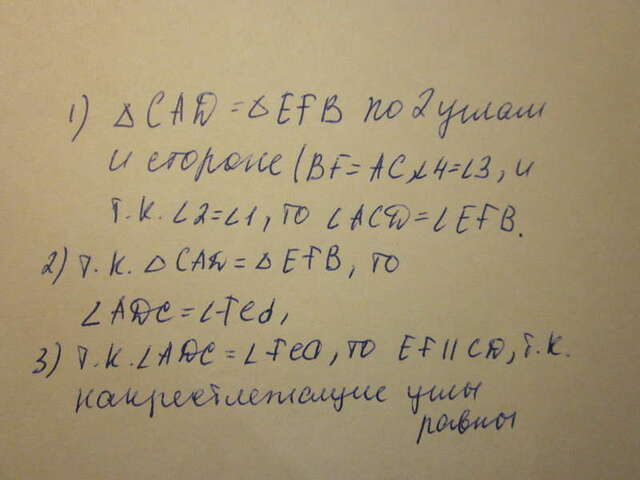 1) △CAD = △EFB по 2 углам
и стороне (BF = AC, ∠4=∠3, и
т.к. ∠2=∠1, то ∠ACD = ∠EFB.
2) т.к. △CAD = △EFB, то
∠ADC = ∠FEd,
3) т.к. ∠ADC = ∠FeD, то EF || CD, т.к.
накрестлежащие углы
равны